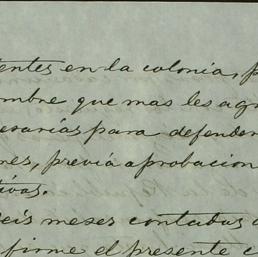 tentes en la colonia, p
ombre que mas les agr
esarias para defender
nes, previá aprobacion
tivas.
seis meses contados d
firme el presente c